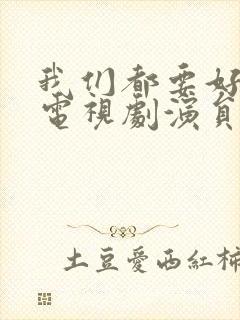 我们都要好
電視劇演員
土豆愛西紅柿